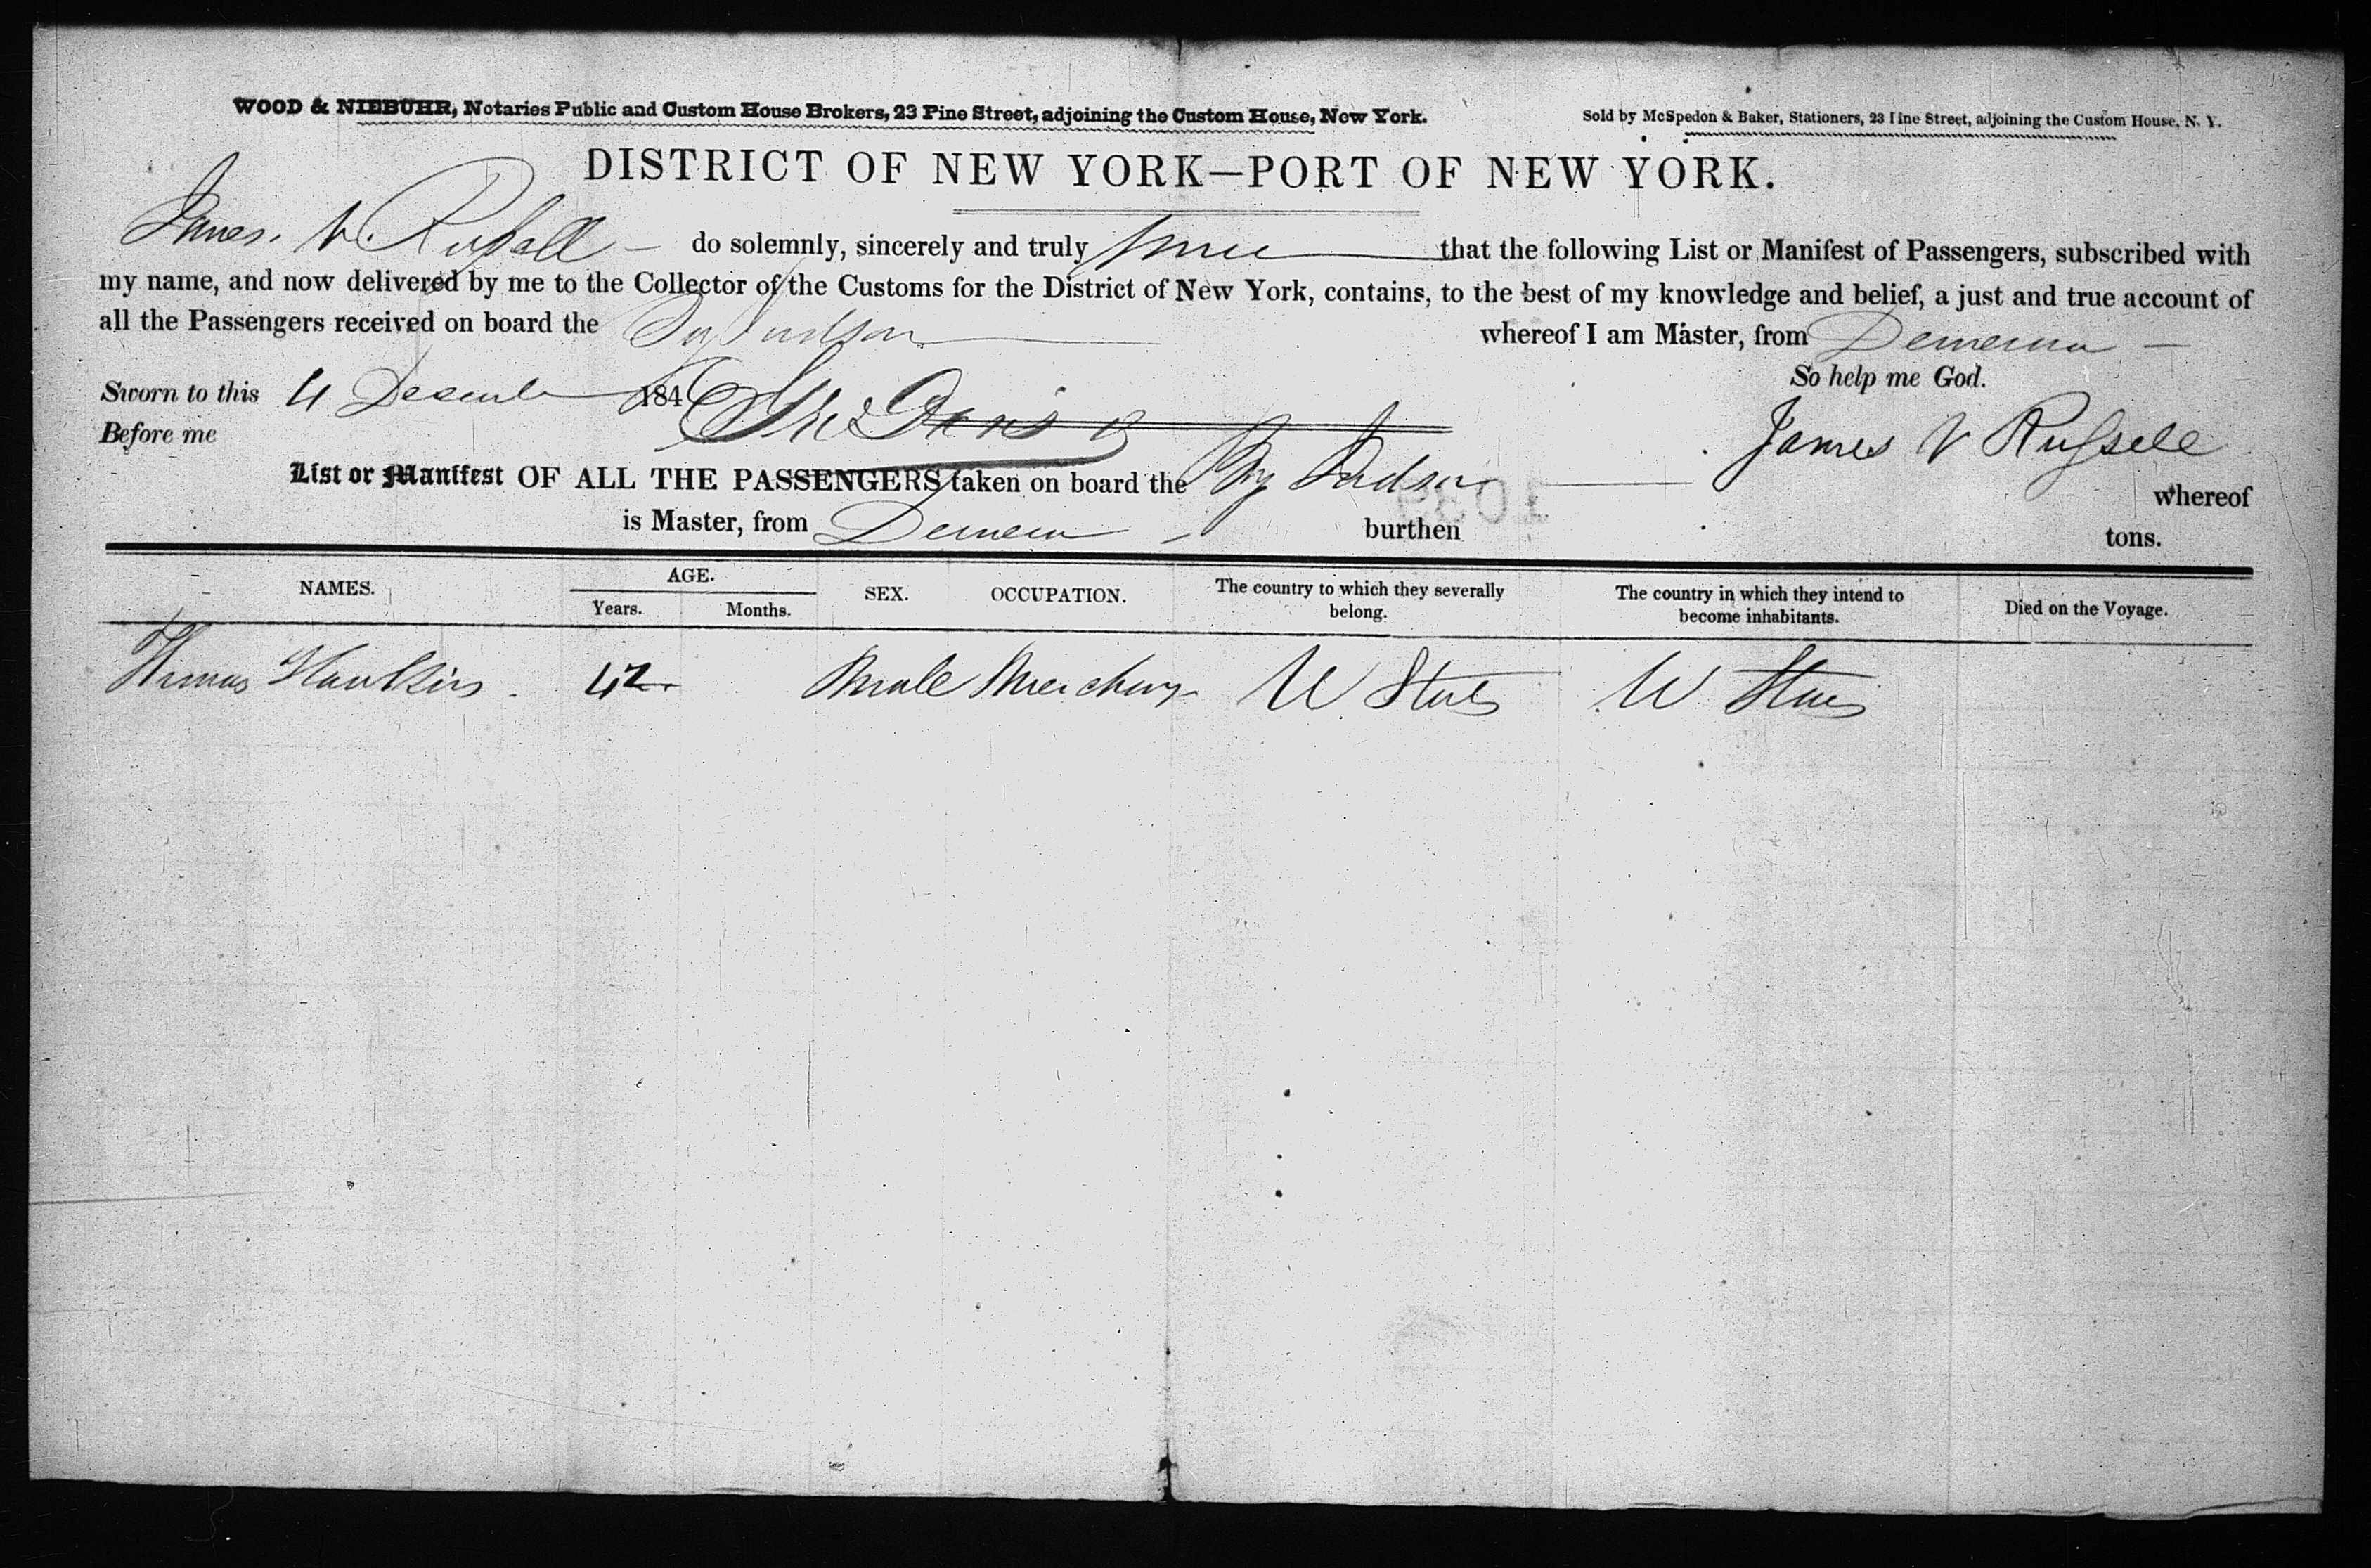 WOOD & NIEBUHR, Notaries Public and Custom House Brokers, 23 Pine Street, adjoining the Custom House, New York.
Sold by McSpedon & Baker, Stationers, 23 Pine Street, adjoining the Custom House, N. Y.
DISTRICT OF NEW YORK—PORT OF NEW YORK.
James V. Russell do solemnly, sincerely and truly that the following List or Manifest of Passengers, subscribed with
my name, and now delivered by me to the Collector of the Customs for the District of New York, contains, to the best of my knowledge and belief, a just and true account of
all the Passengers received on board the whereof I am Master, from Demerara
So help me God.
Sworn to this 4 December 184
James V Russell
Before me
List or Manifest OF ALL THE PASSENGERS taken on board the whereof
is Master, from burthen tons.
NAMES. AGE. SEX. OCCUPATION. The country to which they severally belong. The country in which they intend to become inhabitants. Died on the Voyage.
Years. Months.
Thomas Hawkins 42 Male Merchant U States U States